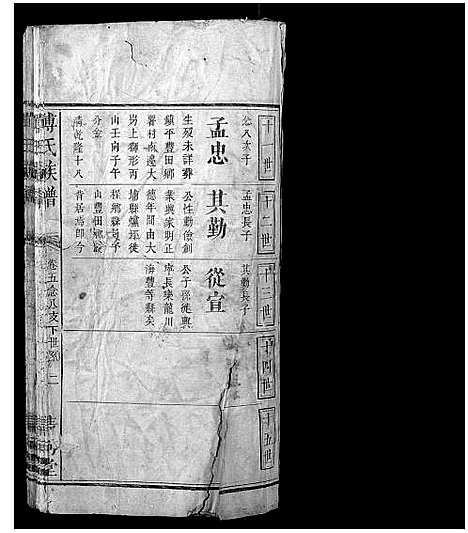 十一世
十二世
十三世
十四世
十五世
念八太子
孟忠
生歿未詳葬
鎮平豊田鄉
署村南邊大
崗上獅形丙
山壬向子午
分金
乾隆十八
孟忠長子
其勤
公性勤儉創
業興家明正
德年間由大
埔縣爐坪徙
程鄉縣
山豊田鄉
其勤長子
從宣
公子孫徙興
寧長樂龍川
海豐等縣矣
傅氏族譜
卷五念八支下世系
二
堂